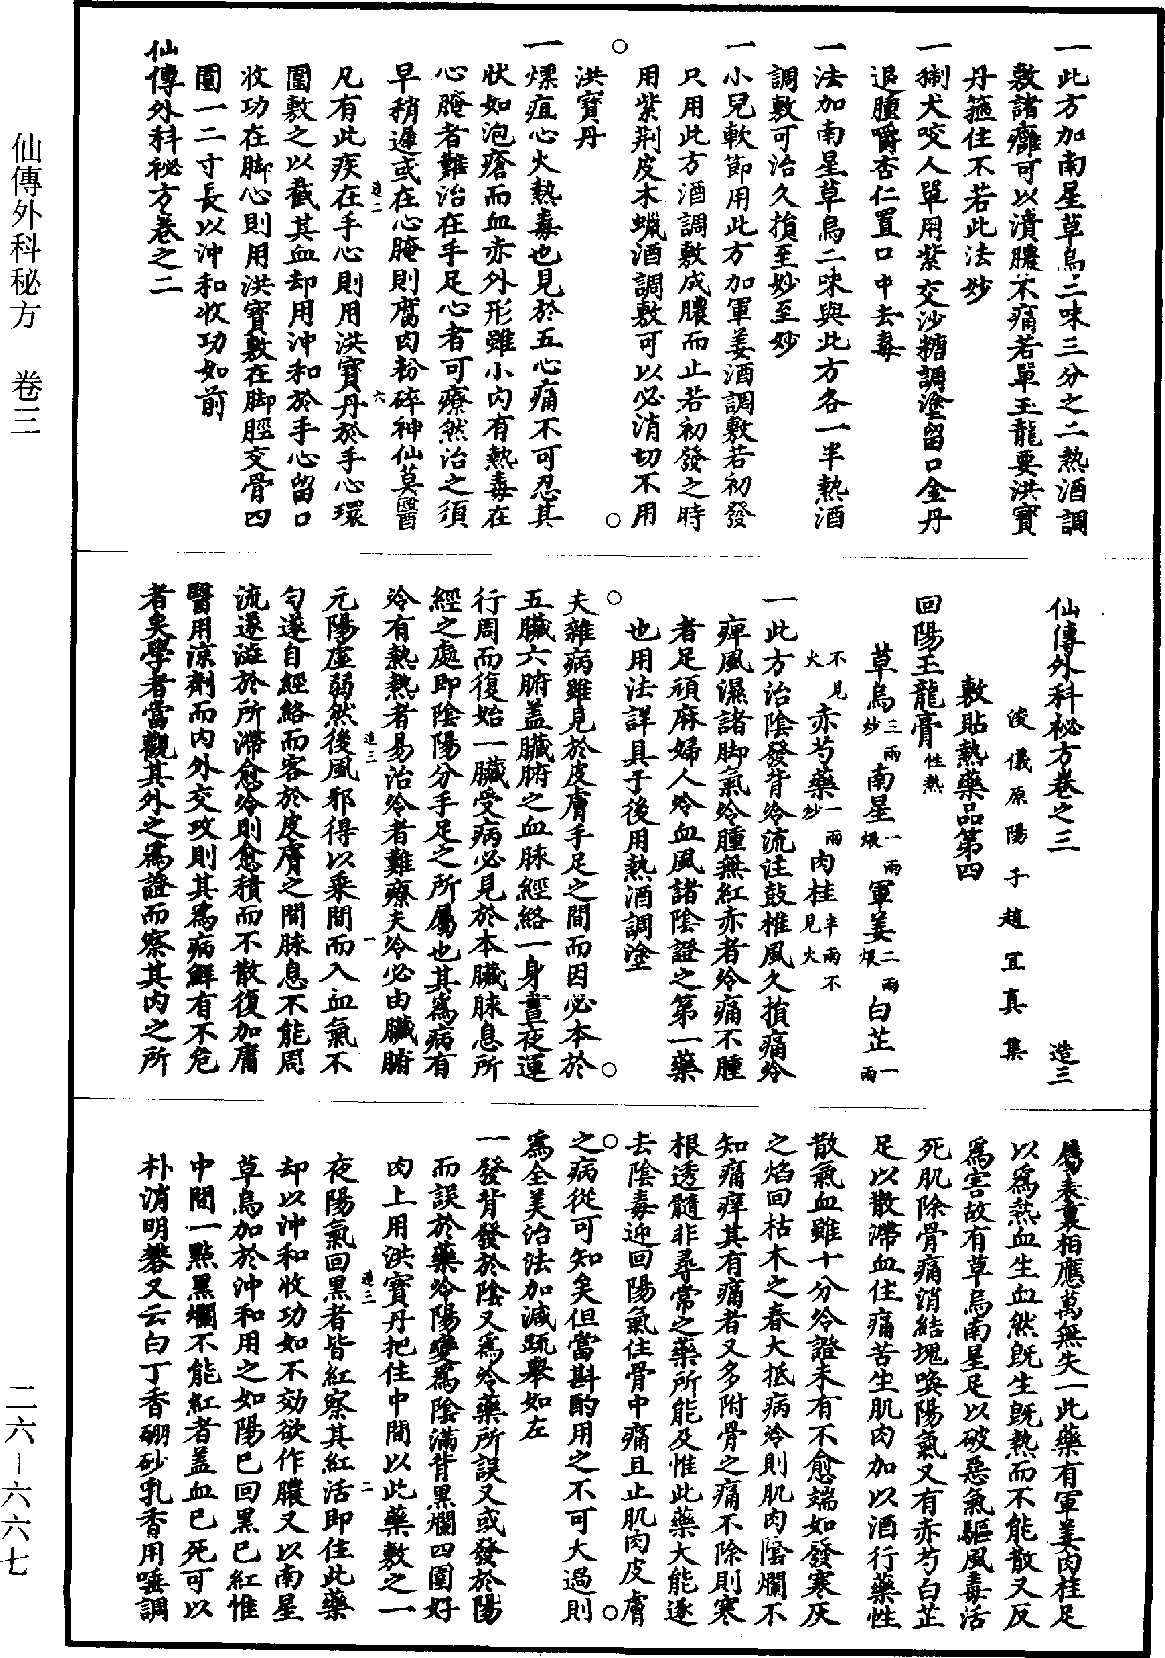 一此方加南星草烏二味三分之二熱酒調
敷諸癰可以潰膿不痛若單玉龍要洪寶
丹箍住不若此法妙
一猘犬咬人單用紫交沙糖調塗留口金丹
退腫嚼杏仁置口中去毒
一法加南星草烏二味與此方各一半熱酒
調敷可治久損至妙至妙
一小兒軟節用此方加軍姜酒調敷若初發
只用此方酒調敷成膿而止若初發之時
用紫荊皮木蠟酒調敷可以必消切不用
洪寶丹
一熛疽心火熱毒也見於五心痛不可忍其
狀如泡瘡而血赤外形雖小內有熱毒在
心腌者難治在手足心者可療然治之須
早稍遲或在心腌則腐肉粉碎神仙莫醫
凡有此疾在手心則用洪寶丹於手心環
圍敷之以截其血却用沖和於手心留口
收功在脚心則用洪寶敷在脚脛交骨四
圍一二寸長以沖和收功如前
仙傳外科秘方卷之二
造二
六
仙傳外科秘方卷之三
造三
浚儀原陽子趙宜真集
敷貼熱藥品第四
回陽玉龍膏性熱
草烏三兩炒南星一兩煨軍姜二兩煨白芷一兩
不見火赤芍藥一兩炒肉桂半兩不見火
一此方治陰發背冷流注鼓椎風久損痛冷
痺風濕諸脚氣冷腫無紅赤者冷痛不腫
者足頑麻婦人冷血風諸陰證之第一藥
也用法詳具于後用熱酒調塗
夫雜病雖見於皮膚手足之間而因必本於
五臟六腑蓋臟腑之血脉經絡一身晝夜運
行周而復始一臟受病必見於本臟脉息所
經之處即陰陽分手足之所屬也其為病有
冷有熱熱者易治冷者難療夫冷必由臟腑
元陽虛弱然後風邪得以乘間而入血氣不
勻遂自經絡而客於皮膚之間脉息不能周
流遂滋於所滯愈冷則愈積而不散復加庸
醫用涼劑而內外交攻則其為病鮮有不危
者矣學者當觀其外之為證而察其內之所
造三
一
屬表裏相應萬無失一此藥有軍姜肉桂足
以為熱血生血然既生既熱而不能散又反
為害故有草烏南星足以破惡氣驅風毒活
死肌除骨痛消結塊喚陽氣又有赤芍白芷
足以散滯血住痛苦生肌肉加以酒行藥性
散氣血雖十分冷證未有不愈端如發寒灰
之焰回枯木之春大抵病冷則肌肉陰爛不
知痛痒其有痛者又多附骨之痛不除則寒
根透髓非尋常之藥所能及惟此藥大能逐
去陰毒迎回陽氣住骨中痛且止肌肉皮膚
之病從可知矣但當斟酌用之不可大過則
為全美治法加減疏舉如左
一發背發於陰又為冷藥所誤又或發於陽
而誤於藥冷陽變為陰滿背黑爛四圍好
肉上用洪寶丹把住中間以此藥敷之一
夜陽氣回黑者皆紅察其紅活即住此藥
却以沖和收功如不効欲作膿又以南星
草烏加於沖和用之如陽已回黑已紅惟
中間一點黑爛不能紅者蓋血已死可以
朴消明礬又云白丁香硼砂乳香用唾調
造三
二
仙傳外科秘方　卷三
二六—六六七